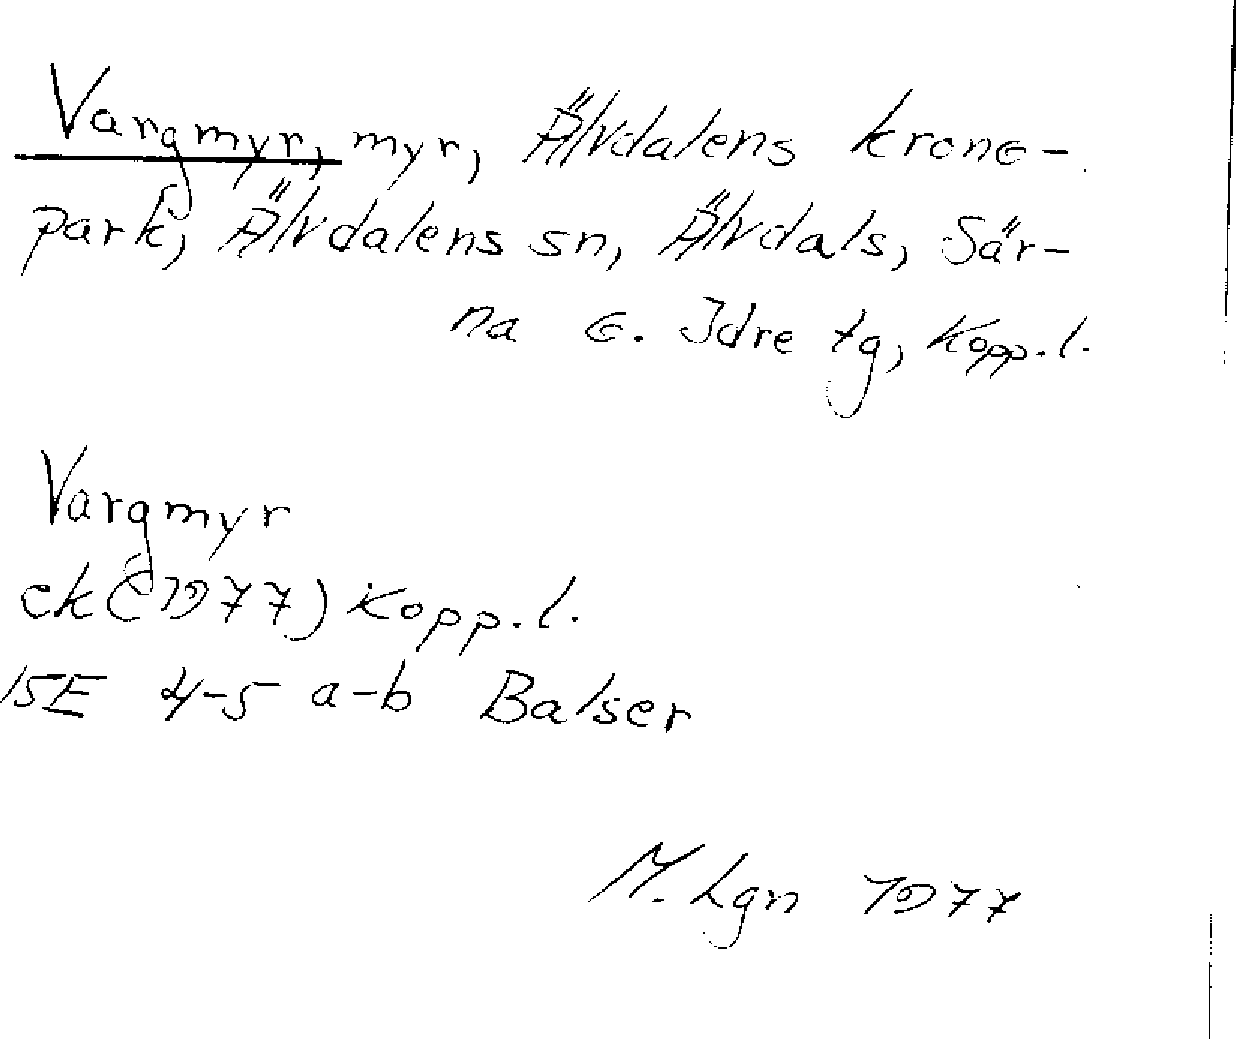 Vargmyr, myr, Älvdalens krono-
park, Älvdalens sn, Älvdals, Sär-
na o. Idre tg, Kopp. l.
Vargmyr
ek (1977) Kopp. l.
15E 4-5 a-b Balser
M. Lgn 1977